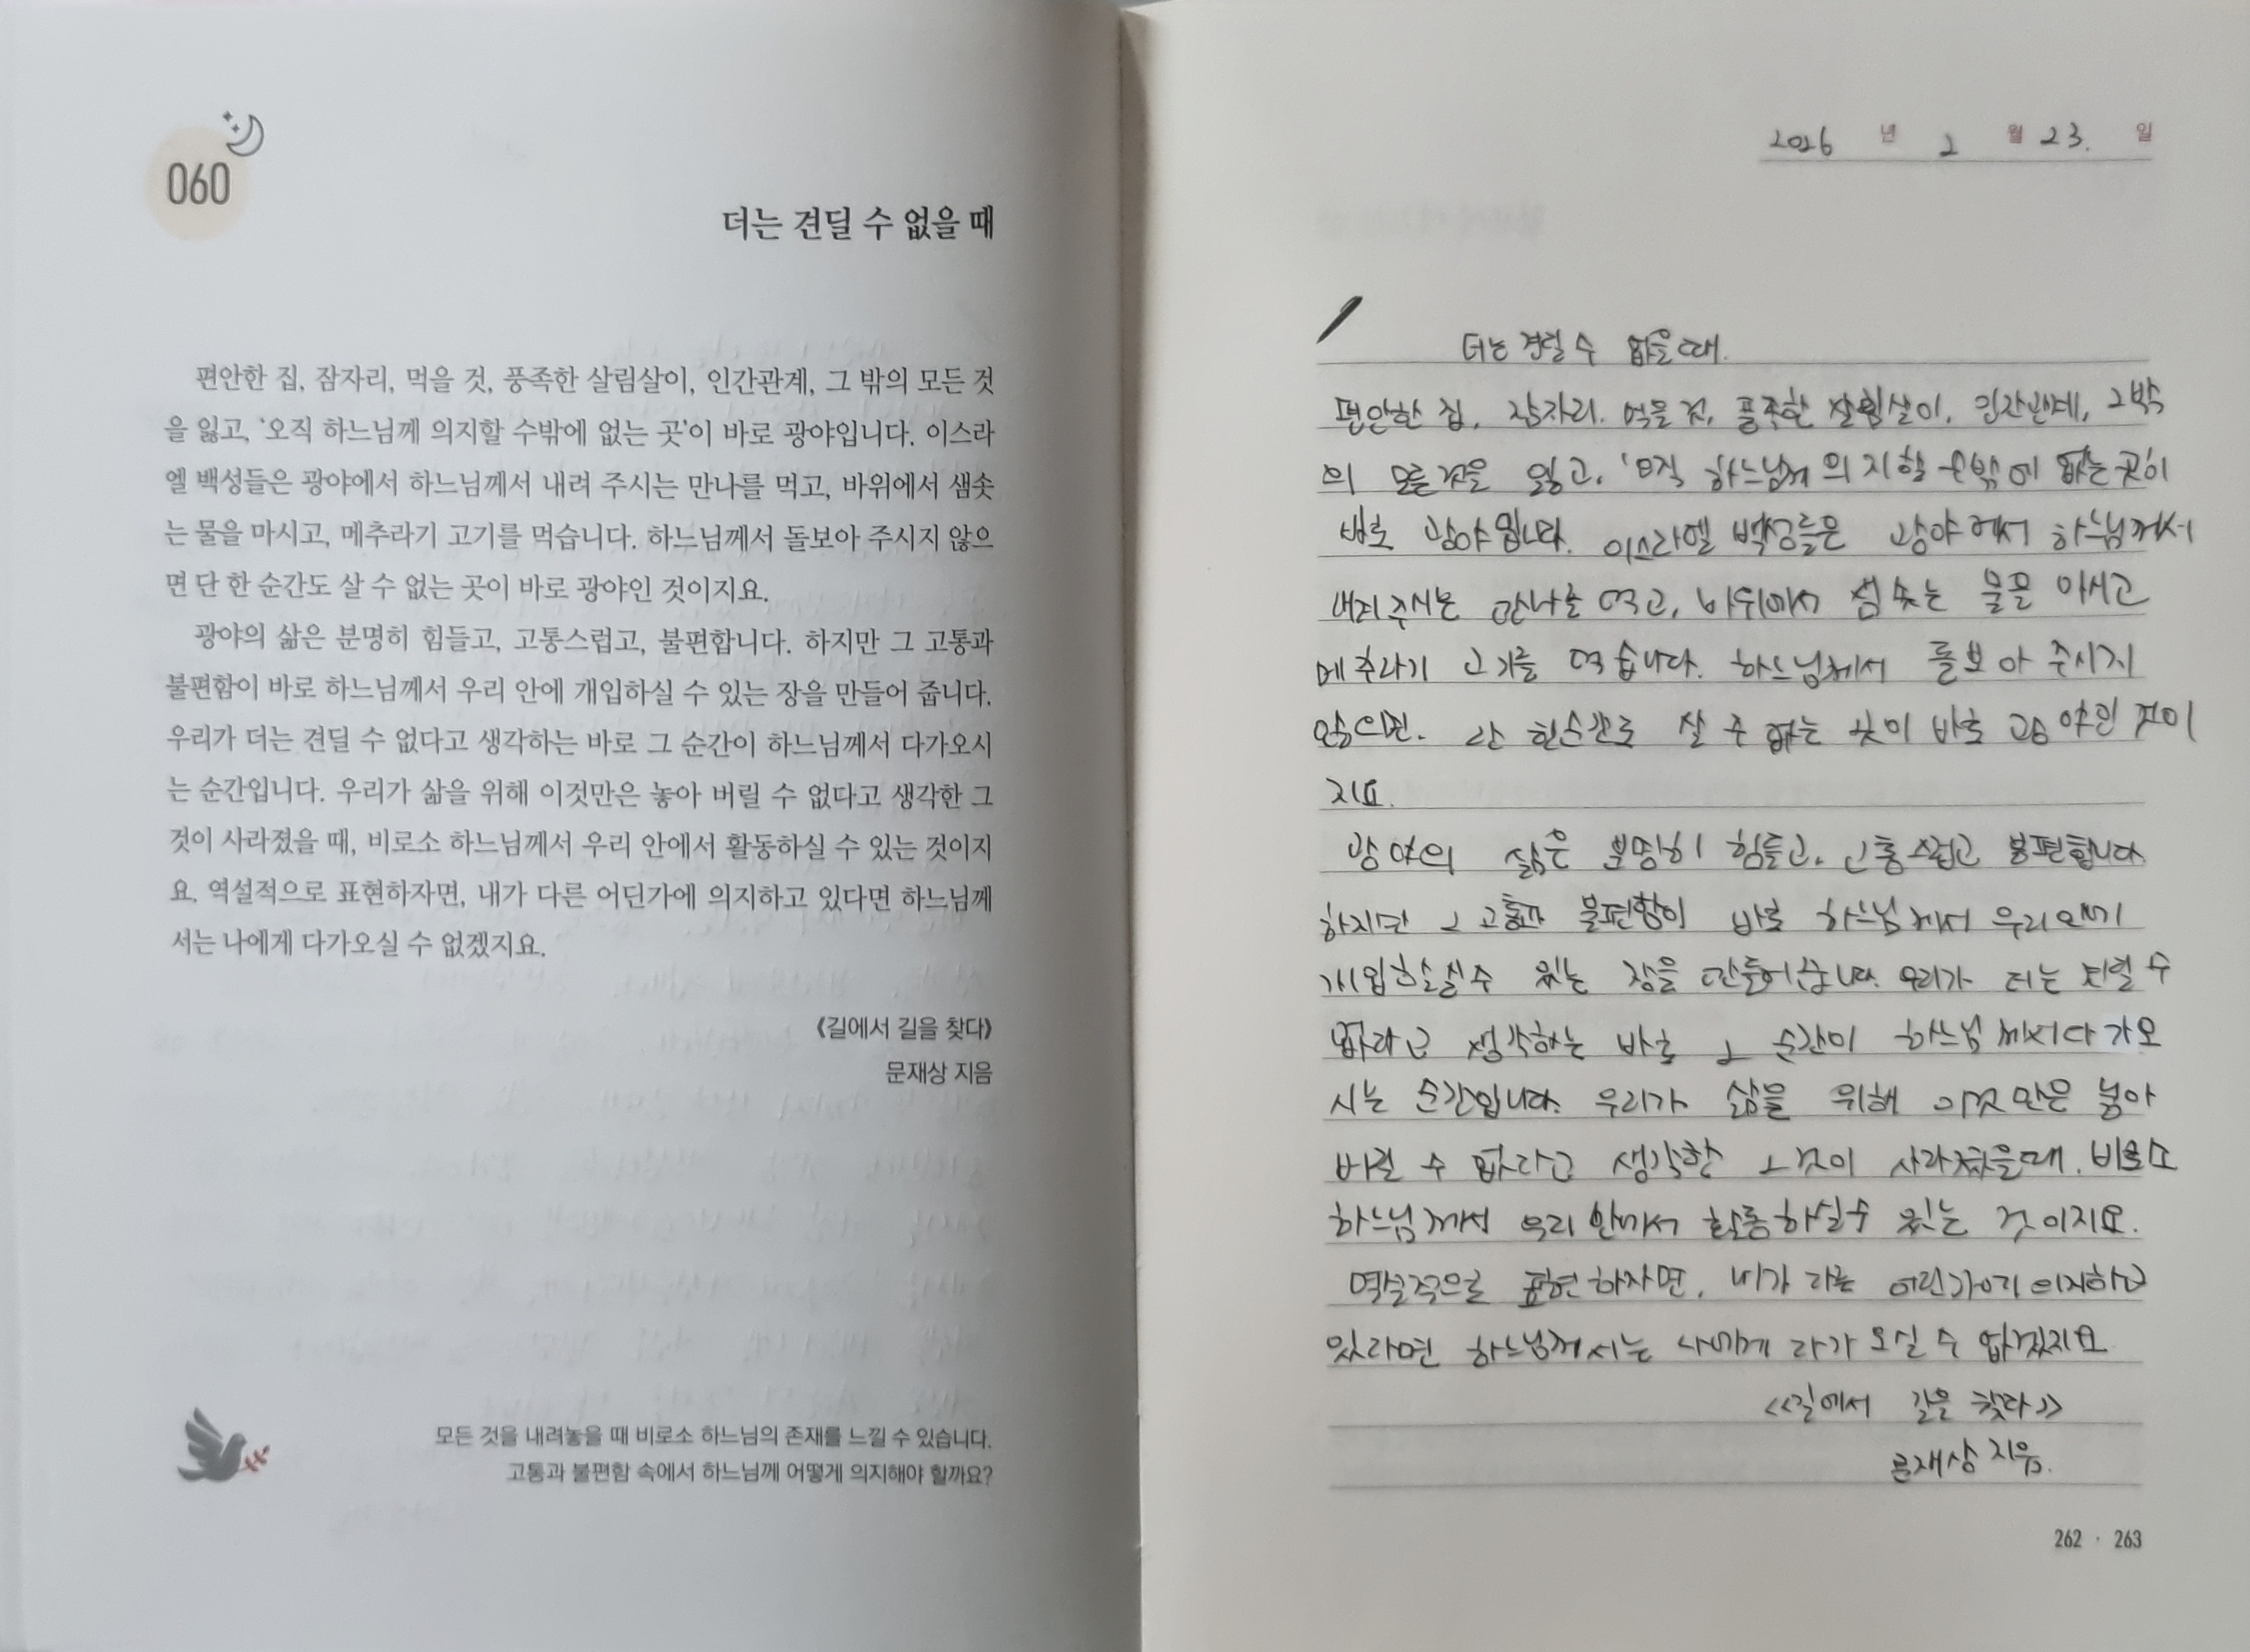 060
더는 견딜 수 없을 때
편안한 집, 잠자리, 먹을 것, 풍족한 살림살이, 인간관계, 그 밖의 모든 것
을 잃고, ‘오직 하느님께 의지할 수밖에 없는 곳’이 바로 광야입니다. 이스라
엘 백성들은 광야에서 하느님께서 내려 주시는 만나를 먹고, 바위에서 샘솟
는 물을 마시고, 메추라기 고기를 먹습니다. 하느님께서 돌보아 주시지 않으
면 단 한 순간도 살 수 없는 곳이 바로 광야인 것이지요.
광야의 삶은 분명히 힘들고, 고통스럽고, 불편합니다. 하지만 그 고통과
불편함이 바로 하느님께서 우리 안에 개입하실 수 있는 장을 만들어 줍니다.
우리가 더는 견딜 수 없다고 생각하는 바로 그 순간이 하느님께서 다가오시
는 순간입니다. 우리가 삶을 위해 이것만은 놓아 버릴 수 없다고 생각한 그
것이 사라졌을 때, 비로소 하느님께서 우리 안에서 활동하실 수 있는 것이지
요. 역설적으로 표현하자면, 내가 다른 어딘가에 의지하고 있다면 하느님께
서는 나에게 다가오실 수 없겠지요.
《길에서 길을 찾다》
문재상 지음
모든 것을 내려놓을 때 비로소 하느님의 존재를 느낄 수 있습니다.
고통과 불편함 속에서 하느님께 어떻게 의지해야 할까요?
2026 년 2 월 23. 일
더는 견딜 수 없을 때.
편안한 집, 잠자리. 먹을 것, 풍족한 살림살이, 인간관계, 그 밖
의 모든 것을 잃고, ‘오직 하느님께 의지할 수밖에 없는 곳이
바로 광야입니다. 이스라엘 백성들은 광야에서 하느님께서
내려 주시는 만나를 먹고, 바위에서 샘 솟는 물을 마시고
메추라기 고기를 먹습니다. 하느님께서 돌보아 주시지
않으면. 단 한순간도 살 수 없는 곳이 바로 광야인 것이
지요.
광야의 삶은 분명히 힘들고, 고통스럽고 불편합니다
하지만 그 고통과 불편함이 바로 하느님께서 우리 안에
개입하실 수 있는 장을 만들어 줍니다. 우리가 더는 견딜 수
없다고 생각하는 바로 그 순간이 하느님께서 다가오
시는 순간입니다. 우리가 삶을 위해 이것만은 놓아
버릴 수 없다고 생각한 그것이 사라졌을때, 비로소
하느님께서 우리 안에서 활동하실수 있는 것이지요.
역설적으로 표현하자면, 내가 다른 어딘가에 의지하고
있다면 하느님께서는 나에게 다가 오실 수 없겠지요
<<길에서 길을 찾다>>
문재상 지음.
262 · 263